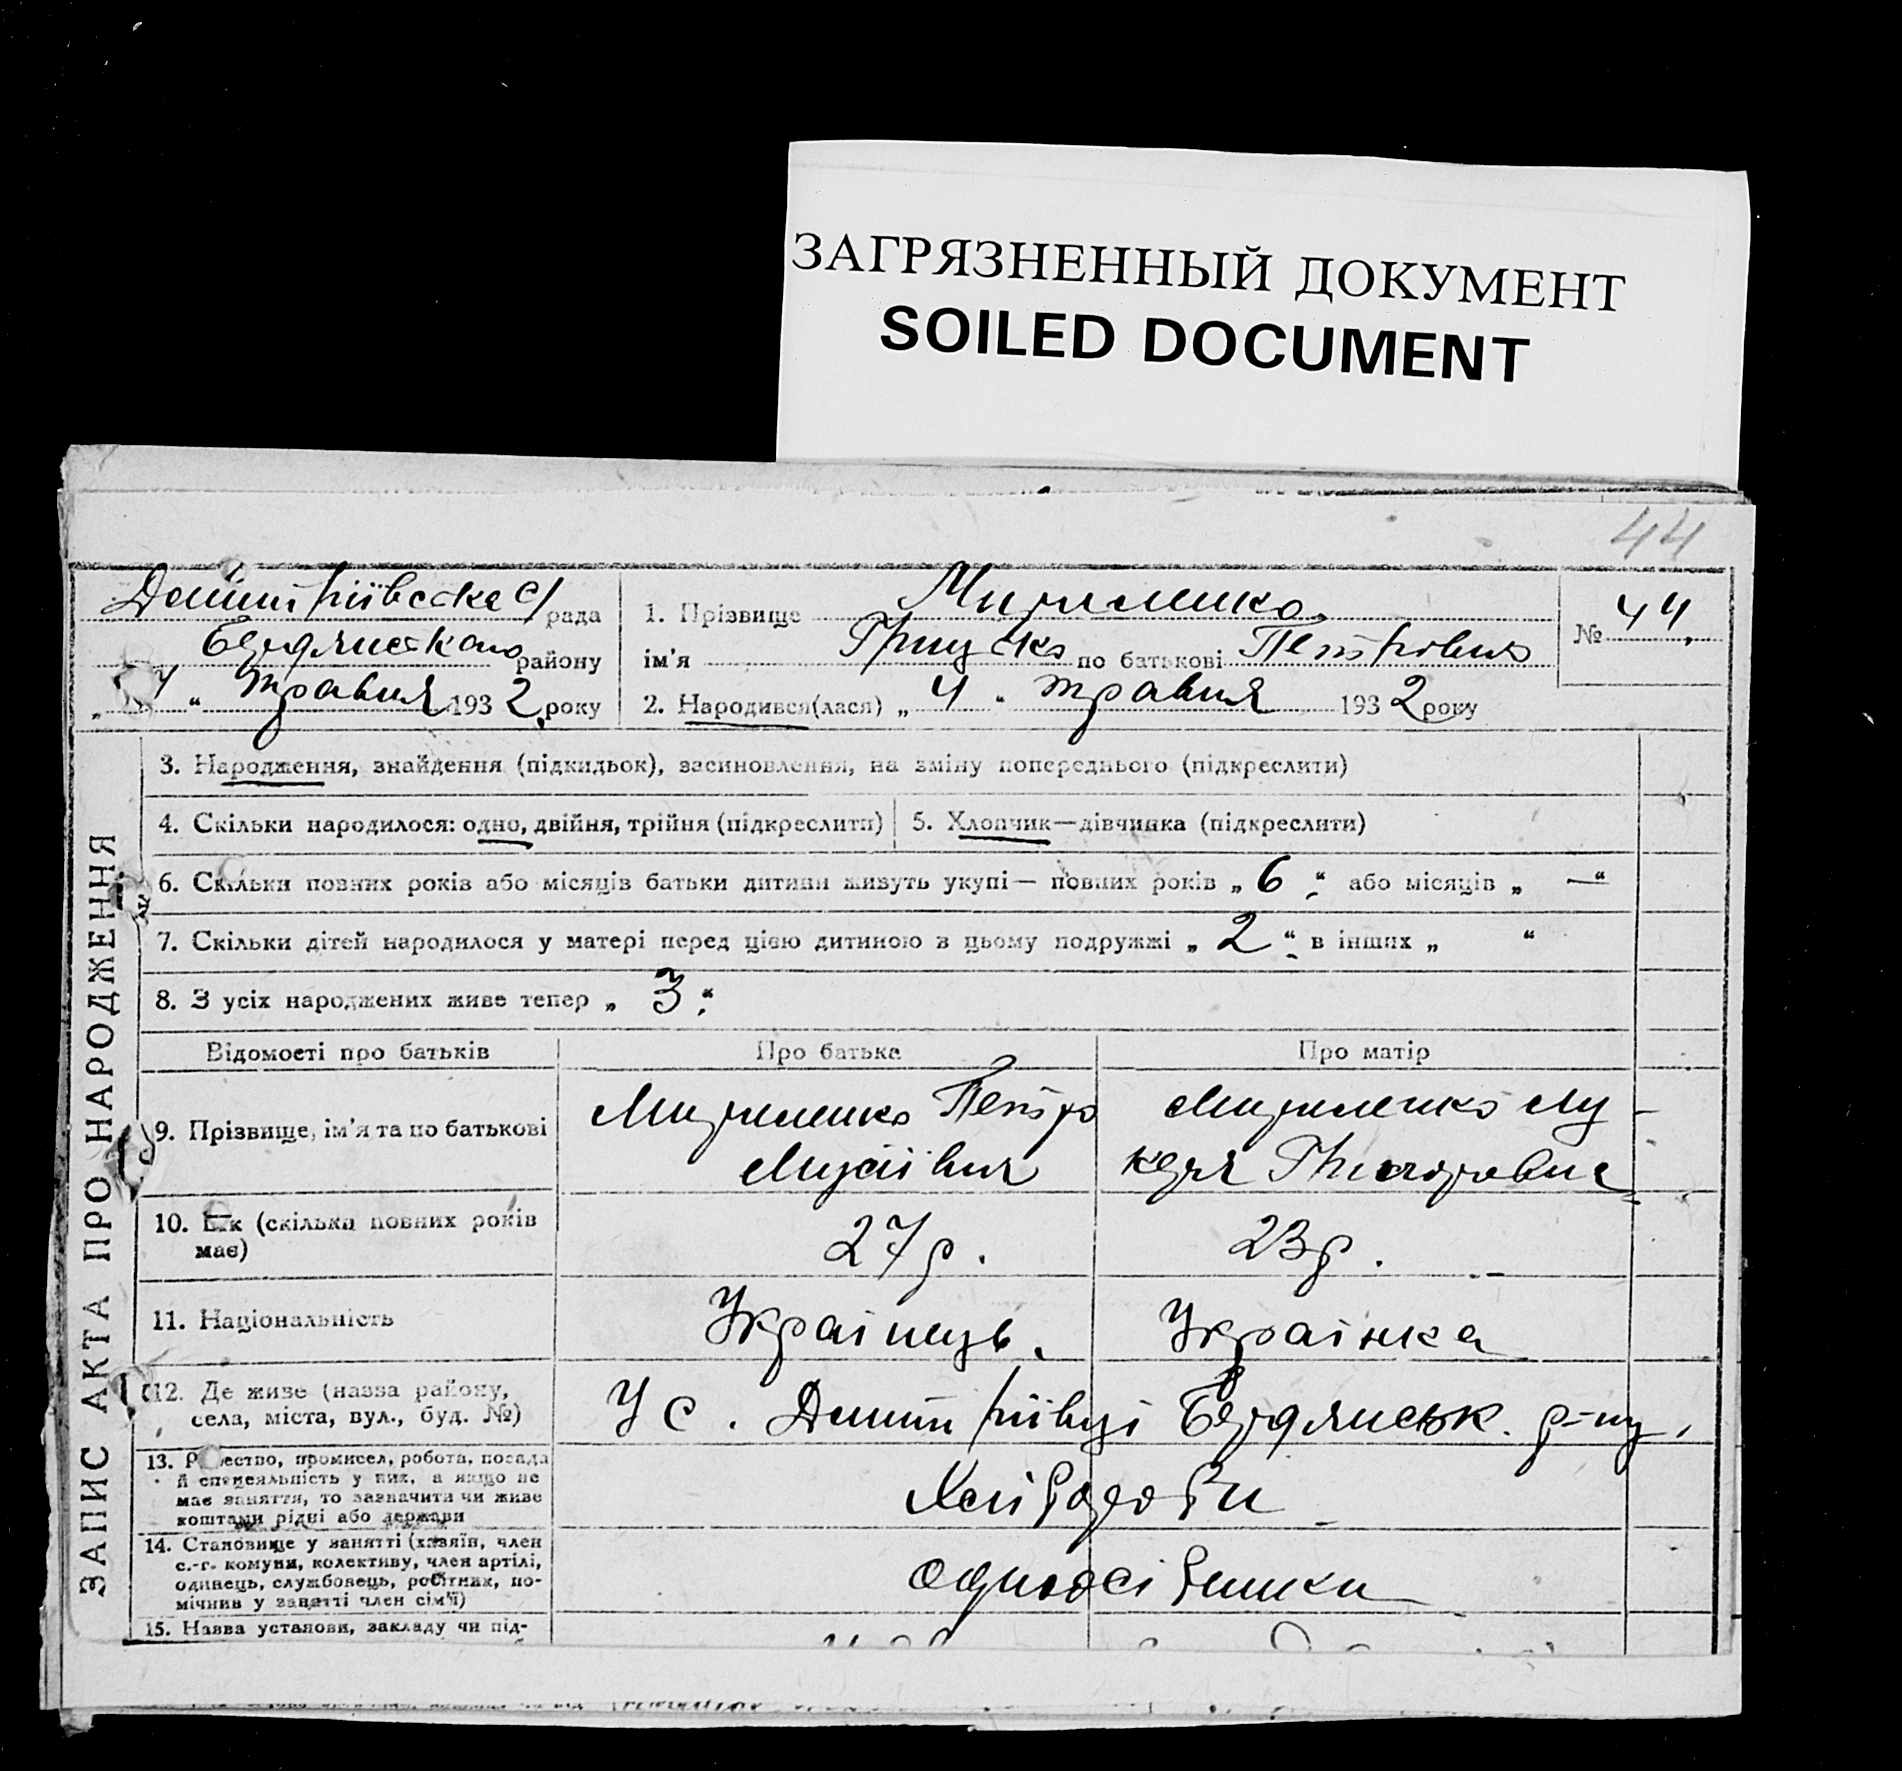 ЗАГРЯЗНЕННЫЙ ДОКУМЕНТ
SOILED DOCUMENT
44
Дмитріївська с/рада
Бердянського району
„ 4 “ травня 1932 року
1. Прізвище
ім'я Грицько по батькові Петрович
2. Народився(лася) „ 4 “ травня 1932 року
№ 44.
ЗАПИС АКТА ПРО НАРОДЖЕННЯ
3. Народження, знайдення (підкидьок), засиновлення, на зміну попереднього (підкреслити)
4. Скільки народилося: одно, двійня, трійня (підкреслити)
5. Хлопчик—дівчинка (підкреслити)
6. Скільки повних років або місяців батьки дитини живуть укупі— повних років „ 6 “ або місяців „ — “
7. Скільки дітей народилося у матері перед цією дитиною в цьому подружжі „ 2 “ в інших „ “
8. З усіх народжених живе тепер „ 3 “
Відомості про батьків
Про батька
Про матір
9. Прізвище, ім'я та по батькові
Петро
Мусіївич
Лу
кер'я Григоровна
10. Вік (скільки повних років
має)
27 р.
23 р.
11. Національність
Українець.
Українка
12. Де живе (назва району,
села, міста, вул., буд. №)
У с. Дмитріївці Бердянськ. р-ну,
13. Р ество, промисел, робота, посада
й спеціяльність у них, а якщо не
має заняття, то зазначити чи живе
коштами рідні або держави
Хлібороби
14. Становище у занятті (хазяїн, член
с.-г. комуни, колективу, член артілі,
одинець, службовець, робітник, по-
мічник у занятті член сім'ї)
одноосібники
15. Назва установи, закладу чи під-